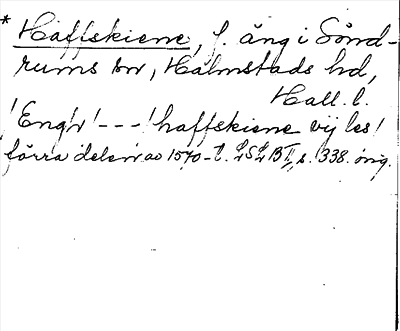 * Haffskiene, f. äng i Sönd-
rums sn, Halmstads hd,
Hall. l.
! Engh ! --- ! haffskiene vij les !
förra delen av 1570-t. LSLB II, s. 338. orig.